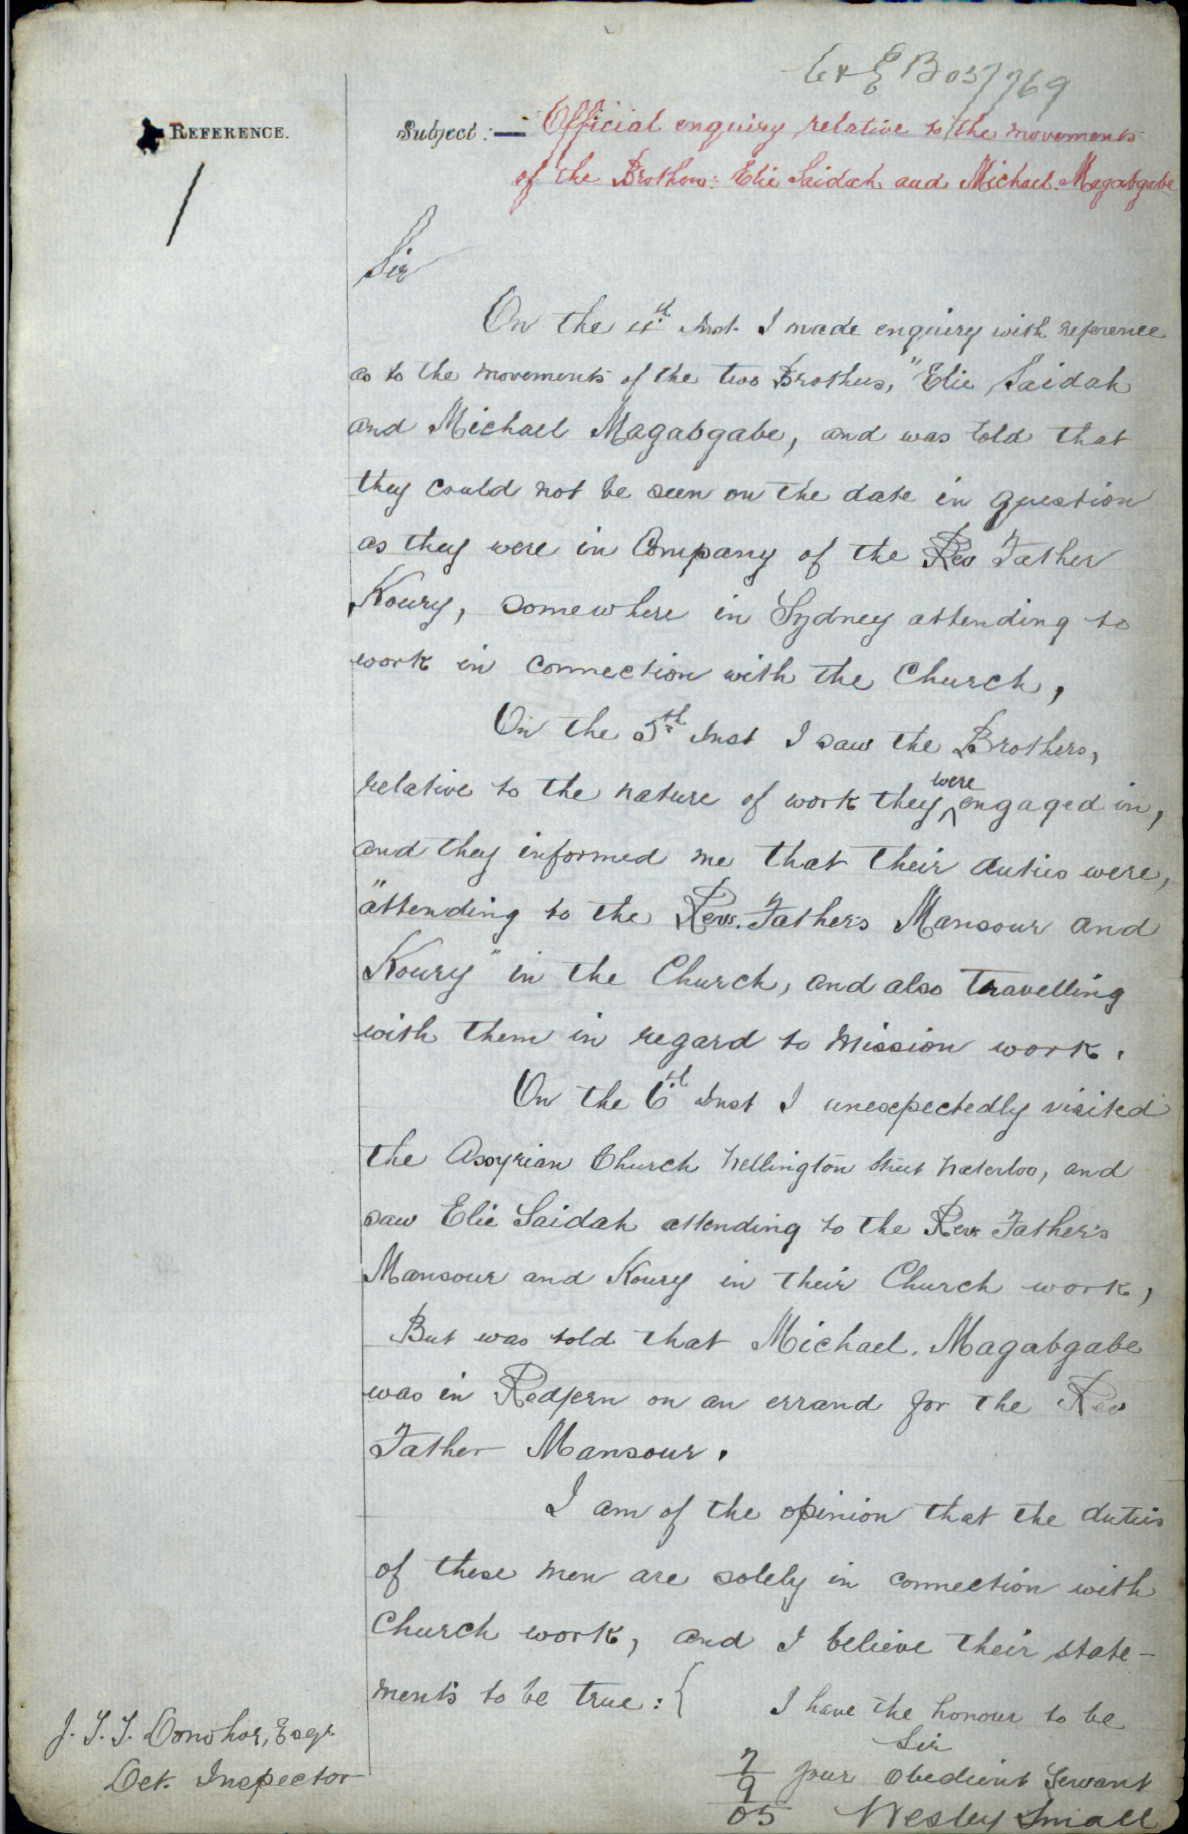 C & E B 05/7769
REFERENCE.
Subject:— Official enquiry relative to the movements
of the Brothers: Elie Saidah and Michael. Magabgabe
Sir
On the 4th Inst. I made enquiry with reference
as to the movements of the two Brothers, "Elie Saidah
and Michael Magabgabe, and was told that
they could not be seen on the date in question
as they were in Company of the Rev Father
Koury, somewhere in Sydney attending to
work in connection with the Church,
On the 5th Inst I saw the Brothers,
relative to the nature of work they were engaged in,
and they informed me that their duties were,
"attending to the Rev. Father's Mansour and
Koury" in the Church, and also Travelling
with them in regard to Mission work.
On the 6th Inst I unexpectedly visited
the Assyrian Church Wellington Street Waterloo, and
saw Elie Saidah attending to the Rev Father's
Mansour and Koury in their Church work,
But was told that Michael. Magabgabe
was in Redfern on an errand for the Rev
Father Mansour.
I am of the opinion that the duties
of these men are solely in connection with
Church work, and I believe their state-
ments to be true:{
I have the honour to be
Sir
your obedient Servant
Wesley Small
7/9/05
J. T. T. Donohoe, Esqr.
Det. Inspector